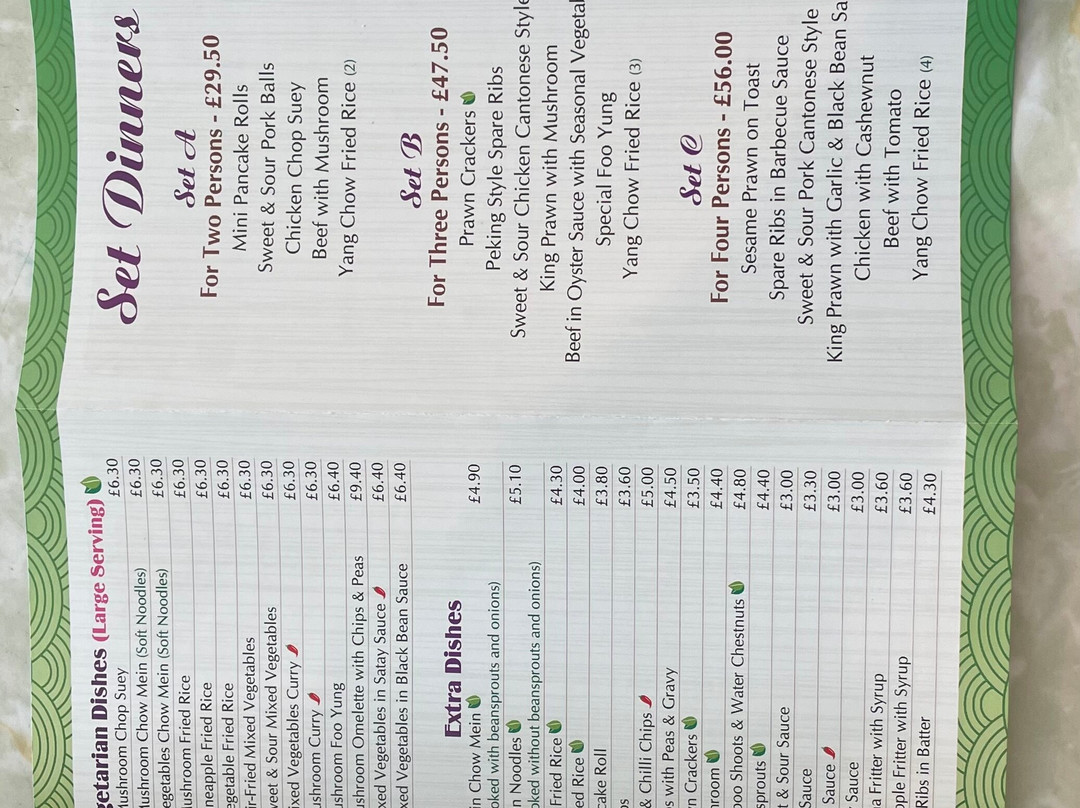 getarian Dishes (Large Serving)
ushroom Chop Suey £6.30
ushroom Chow Mein (Soft Noodles) £6.30
egetables Chow Mein (Soft Noodles) £6.30
ushroom Fried Rice £6.30
neapple Fried Rice £6.30
egetable Fried Rice £6.30
ir-Fried Mixed Vegetables £6.30
weet & Sour Mixed Vegetables £6.30
ixed Vegetables Curry £6.30
ushroom Curry £6.30
ushroom Foo Yung £6.40
ushroom Omelette with Chips & Peas £9.40
xed Vegetables in Satay Sauce £6.40
xed Vegetables in Black Bean Sauce £6.40
Extra Dishes
in Chow Mein £4.90
oked with beansprouts and onions)
n Noodles £5.10
oked without beansprouts and onions)
Fried Rice £4.30
ed Rice £4.00
cake Roll £3.80
ps £3.60
& Chilli Chips £5.00
s with Peas & Gravy £4.50
n Crackers £3.50
hroom £4.40
boo Shoots & Water Chestnuts £4.80
sprouts £4.40
t & Sour Sauce £3.00
Sauce £3.30
Sauce £3.00
Sauce £3.00
a Fritter with Syrup £3.60
ple Fritter with Syrup £3.60
Ribs in Batter £4.30
Set Dinners
Set A
For Two Persons - £29.50
Mini Pancake Rolls
Sweet & Sour Pork Balls
Chicken Chop Suey
Beef with Mushroom
Yang Chow Fried Rice (2)
Set B
For Three Persons - £47.50
Prawn Crackers
Peking Style Spare Ribs
Sweet & Sour Chicken Cantonese Style
King Prawn with Mushroom
Beef in Oyster Sauce with Seasonal Vegetal
Special Foo Yung
Yang Chow Fried Rice (3)
Set C
For Four Persons - £56.00
Sesame Prawn on Toast
Spare Ribs in Barbecue Sauce
Sweet & Sour Pork Cantonese Style
King Prawn with Garlic & Black Bean Sa
Chicken with Cashewnut
Beef with Tomato
Yang Chow Fried Rice (4)